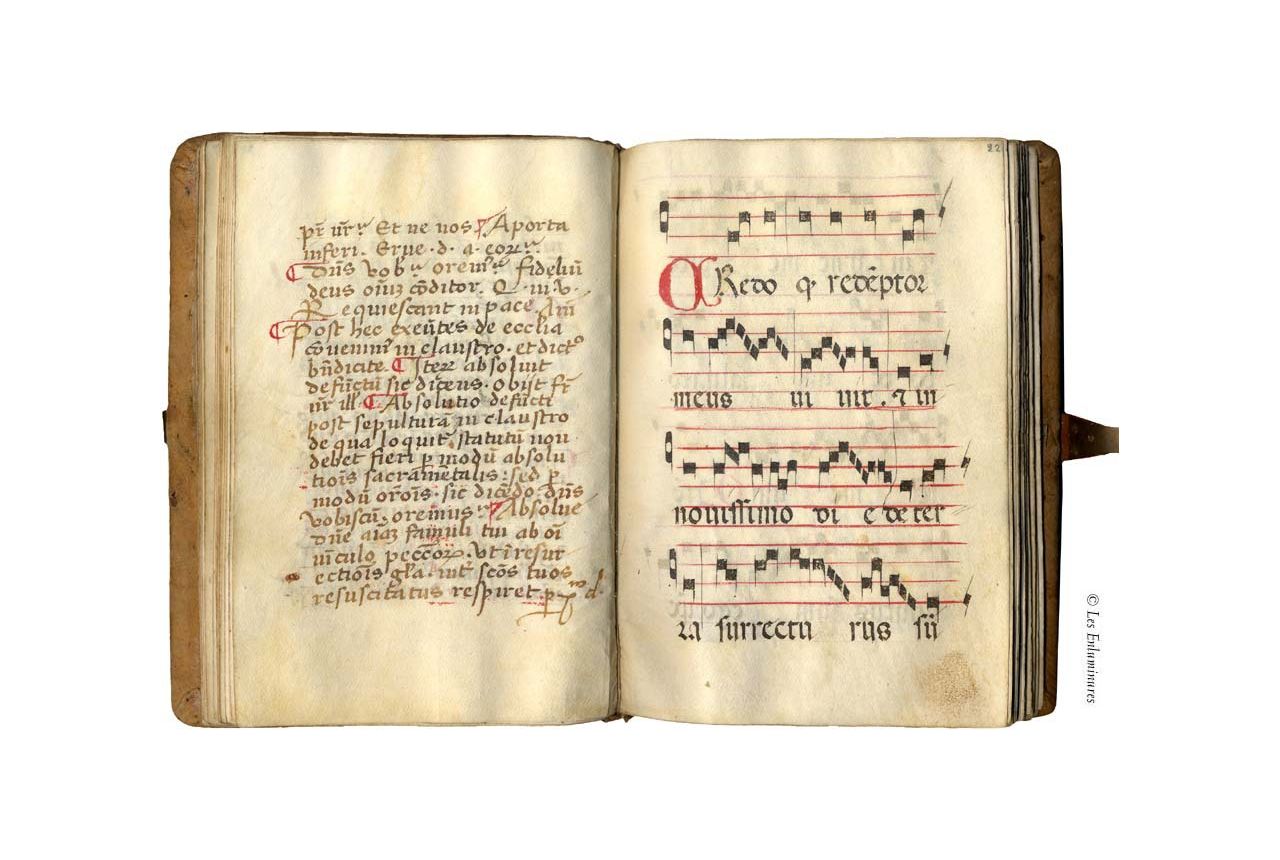 pr̄ nr̄. Et ne nos ℣ Aporta
inferi. Erue · d · a · eorꝝ.
dn̄s vob. orem. fideliū
deus oīuꝫ cōditor. Q · iii · v ·
Requiescant in pace. Am̄
Post hec exeūtes de ecclia
cōueniūt in claustro. et dicto
bn̄dicite. Iteꝝ absoluit
defūctū sic dicens. Obijt fr̄
nr̄ ill. Absolutio defūcti
post sepulturā in claustro
de qua loquit statutū non
debet fieri ꝑ modū absolu
tiōis sacramētalis: sed ꝑ
modū orōis. sic dicēdo. dn̄s
vobiscū. oremus. ℣ Absolue
dn̄e aīaꝫ famuli tui ab oī
uīculo peccorꝝ. Vt ī resur
ectiōis gl̄a. int scōs tuos
resuscitatus respiret. ꝑ
22
CRedo q redēptor
meus ui uit. ⁊ in
nouissimo di e de ter
ra surrectu rus su
© Les Enluminures